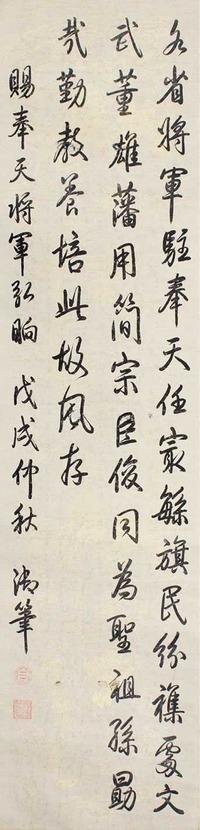 各省將軍駐奉天任㝡緐旗民紛襍處文
武董雄藩用簡宗臣俊同為聖祖孫勗
哉勤教養培此故風存
賜奉天將軍弘晌 戊戌仲秋 御筆